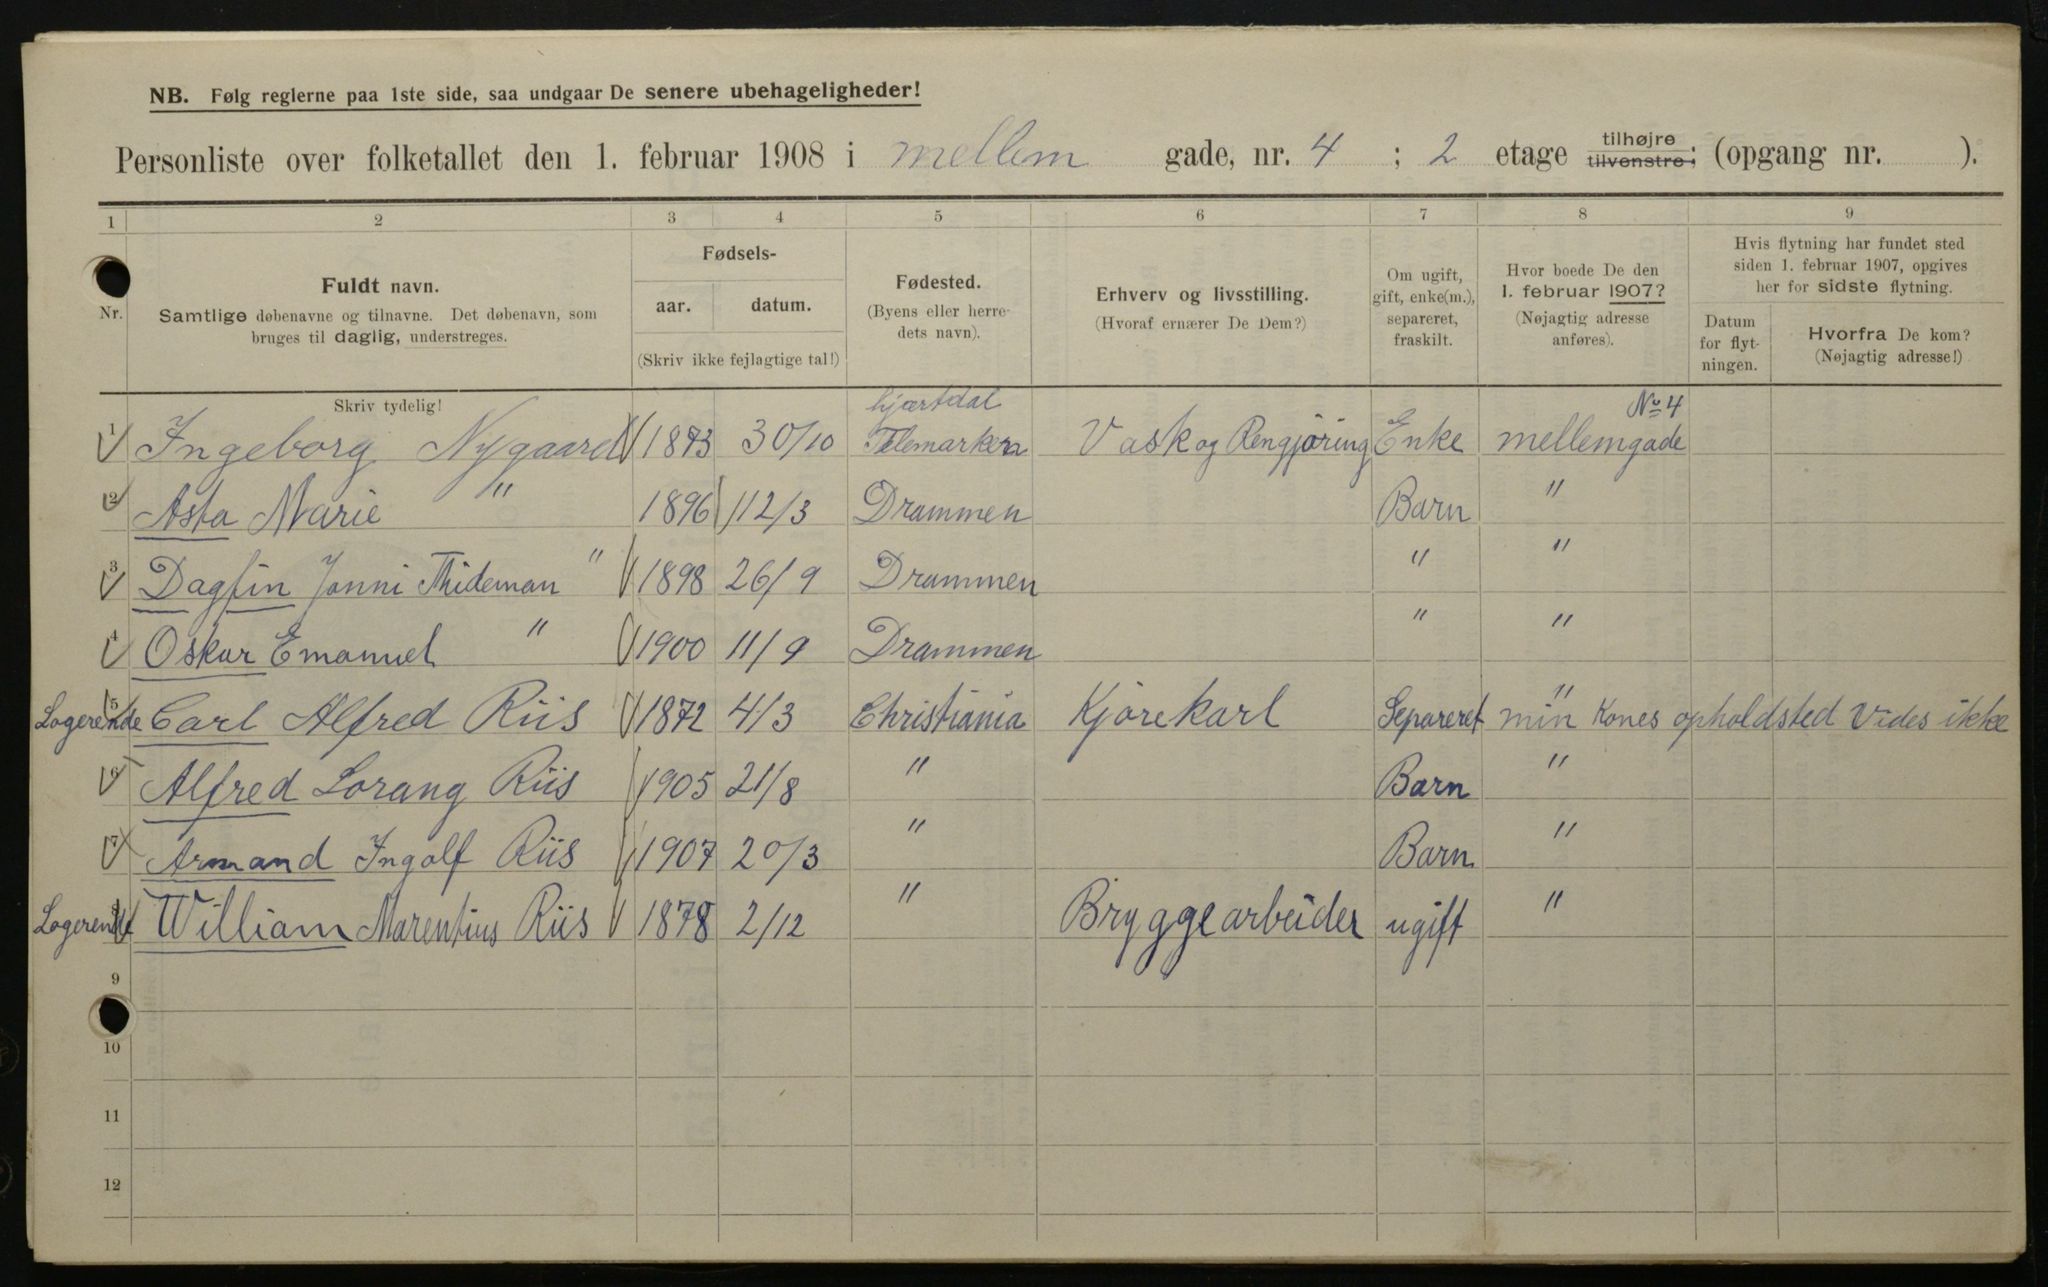 NB. Følg reglerne paa 1ste side, saa undgaar De senere ubehageligheder!
Personliste over folketallet den 1. februar 1908 i mellem gade, nr. 4 ; 2 etage tilhøjre tilvenstre; (opgang nr. ).
1 2 3 4 5 6 7 8 9
Nr.
Fuldt navn.
Samtlige døbenavne og tilnavne. Det døbenavn, som
bruges til daglig, understreges.
Fødsels-
aar. datum.
(Skriv ikke fejlagtige tal!)
Fødested.
(Byens eller herre-
dets navn).
Erhverv og livsstilling.
(Hvoraf ernærer De Dem?)
Om ugift,
gift, enke(m.),
separeret,
fraskilt.
Hvor boede De den
1. februar 1907?
(Nøjagtig adresse
anføres).
Hvis flytning har fundet sted
siden 1. februar 1907, opgives
her for sidste flytning.
Datum
for flyt-
ningen.
Hvorfra De kom?
(Nøjagtig adresse!)
Skriv tydelig!
hjærtdal
No 4
1 Ingeborg Nygaard 1873 30/10 Telemarken Vask og Rengjøring Enke mellemgade
2 Asta Marie " 1896 12/3 Drammen Barn "
3 Dagfin Jonni Thideman " 1898 26/9 Drammen " "
4 Oskar Emanuel " 1900 11/9 Drammen " "
Logerende 5 Carl Alfred Riis 1872 4/3 Christiania Kjørekarl Separeret " min Kones opholdsted Vides ikke
6 Alfred Lorang Riis 1905 21/8 " Barn "
7 Armand Ingolf Riis 1907 20/3 " Barn "
Logerende 8 William Marentius Riis 1878 2/12 " Bryggearbeider ugift "
9
10
11
12